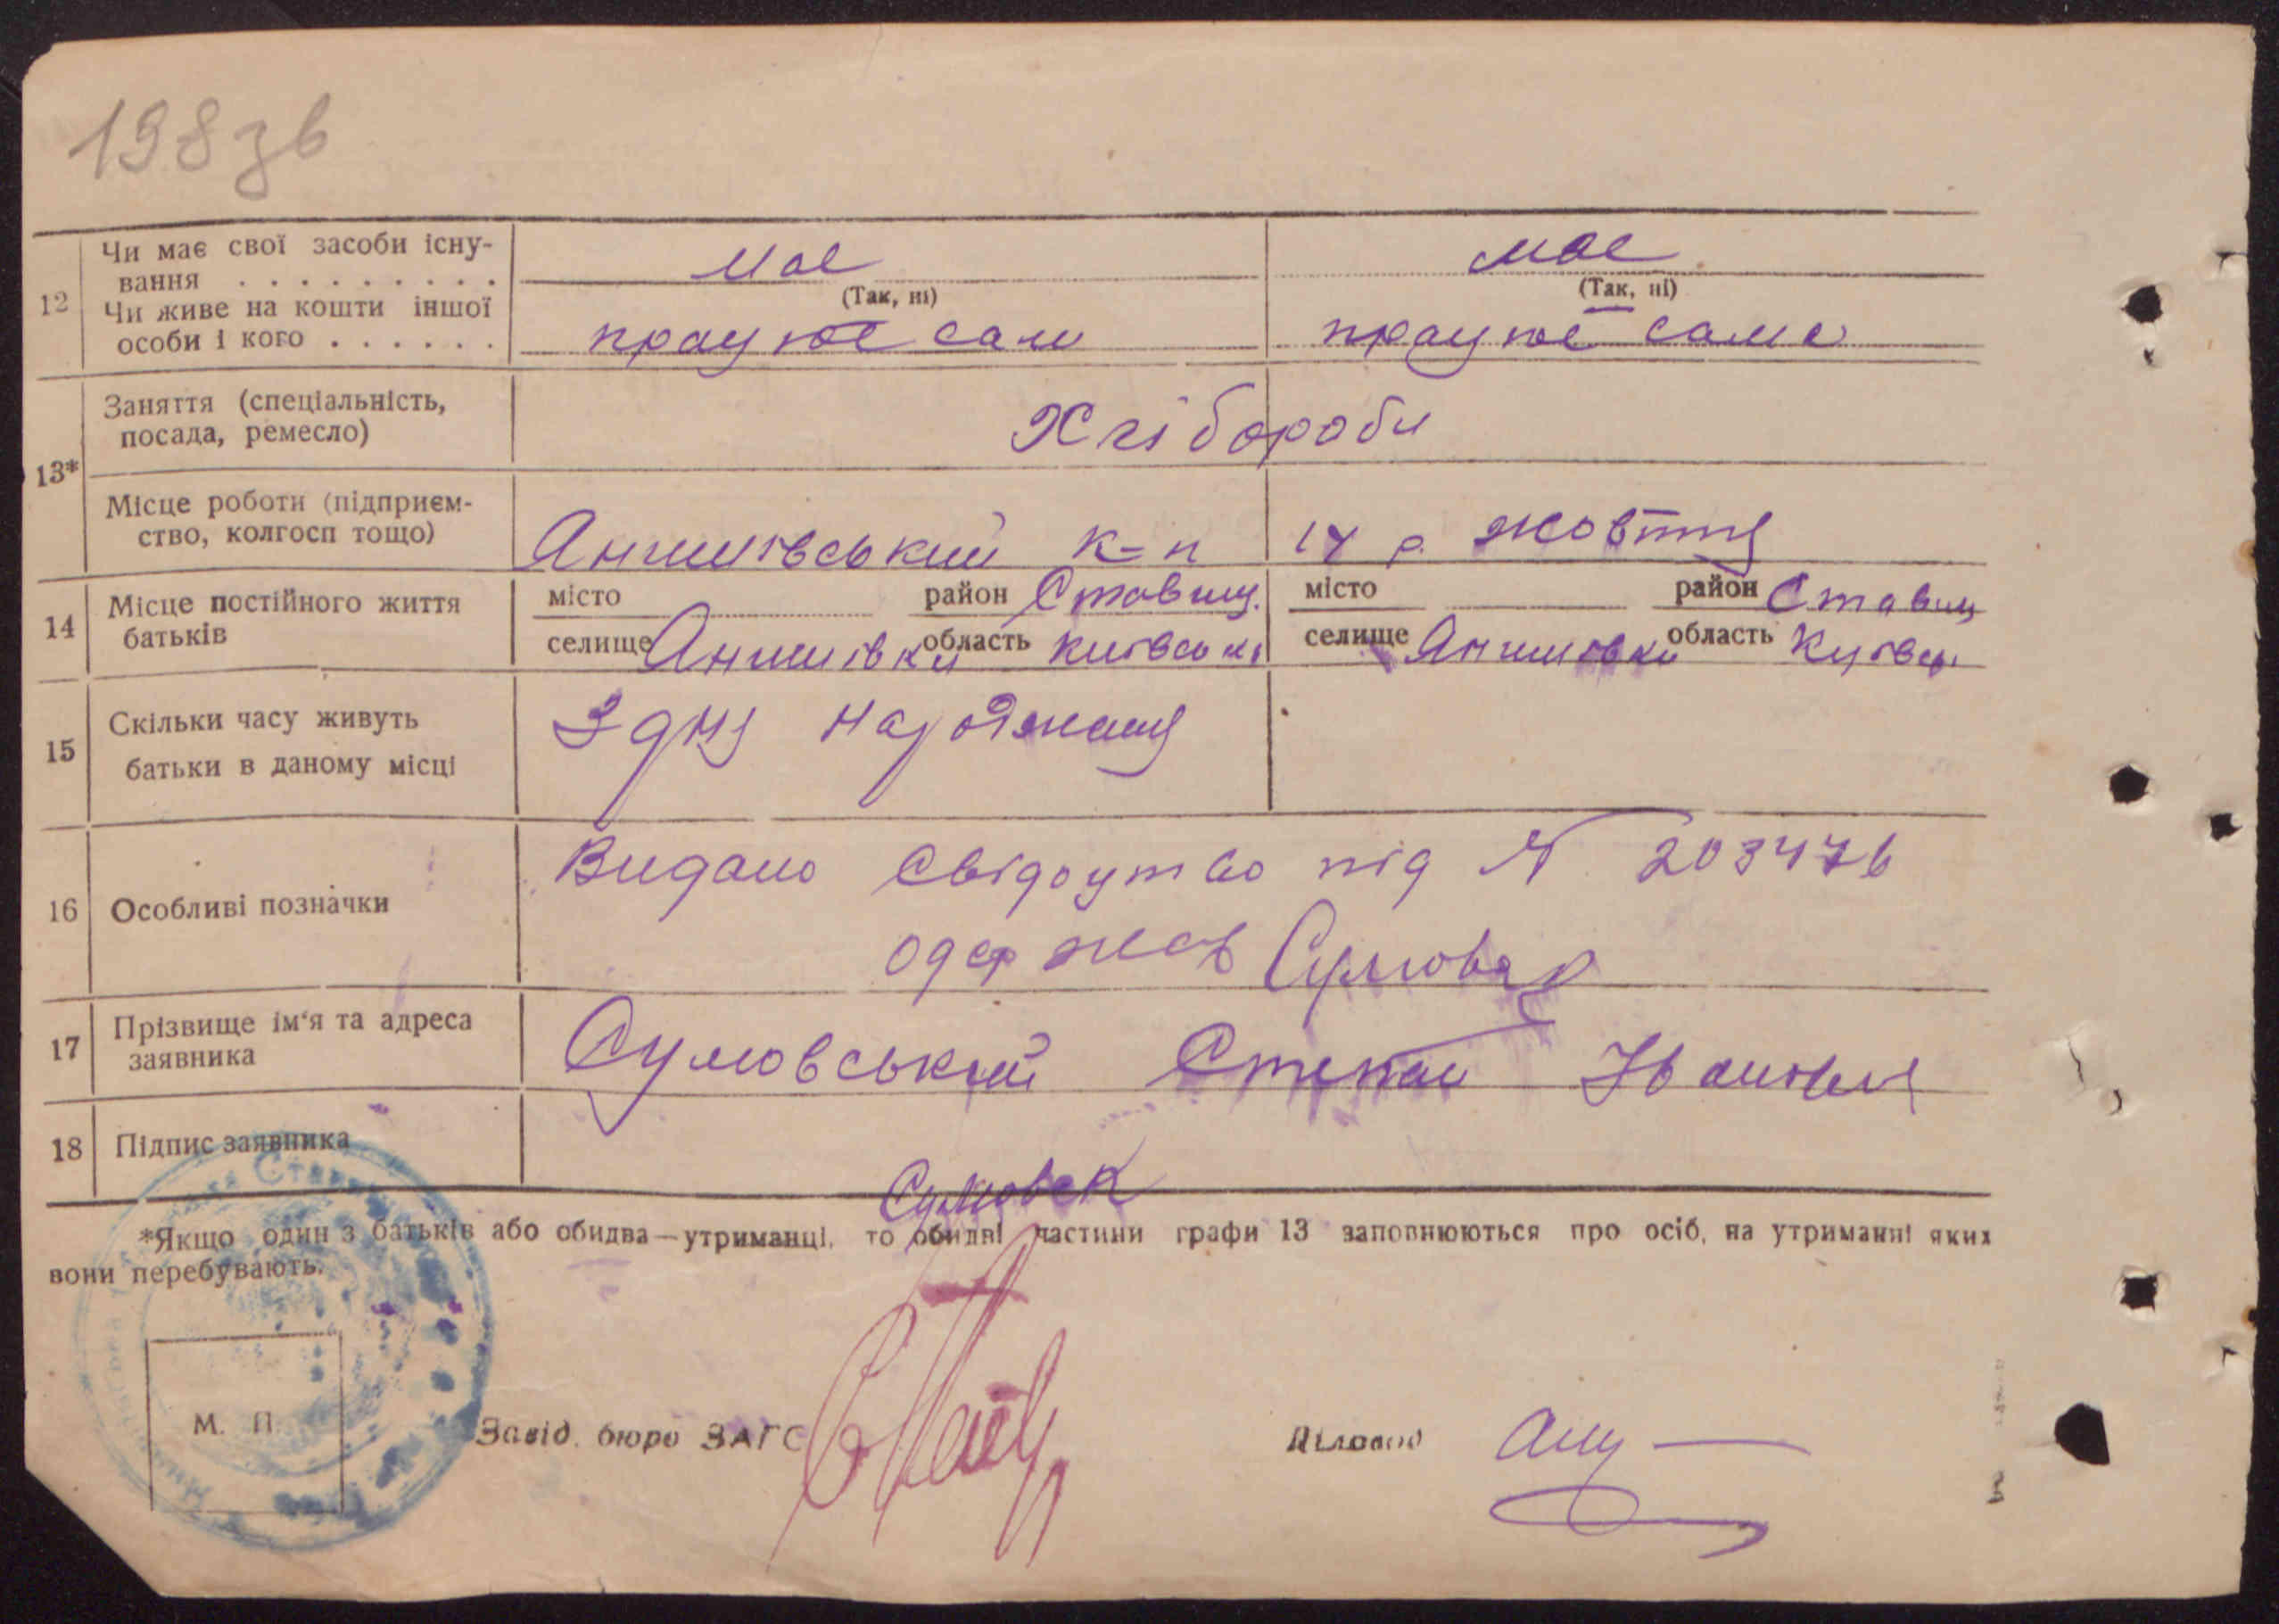 198зв
12 Чи має свої засоби існу-
вання . . . . . . . . . має має
(Так, ні) (Так, ні)
Чи живе на кошти іншої
особи і кого . . . . . . працює сам працює сама
13* Заняття (спеціальність,
посада, ремесло) Хлібороби
Місце роботи (підприєм-
ство, колгосп тощо) Антшівський к-п 14 р. жовтня
14 Місце постійного життя
батьків
місто район Ставищ. місто район Ставищ
селище область Київськ селище область Київсь
15 Скільки часу живуть
батьки в даному місці З дня народження
16 Особливі позначки Видано свідоцтво під № 203476
одержав Сумовськ
17 Прізвище ім'я та адреса
заявника Сумовський Степан Іванович
18 Підпис заявника Сумовск
*Якщо один з батьків або обидва—утриманці, то обидві частини графи 13 заповнюються про осіб, на утриманні яких
вони перебувають.
М. П.
Завід. бюро ЗАГС Діловод